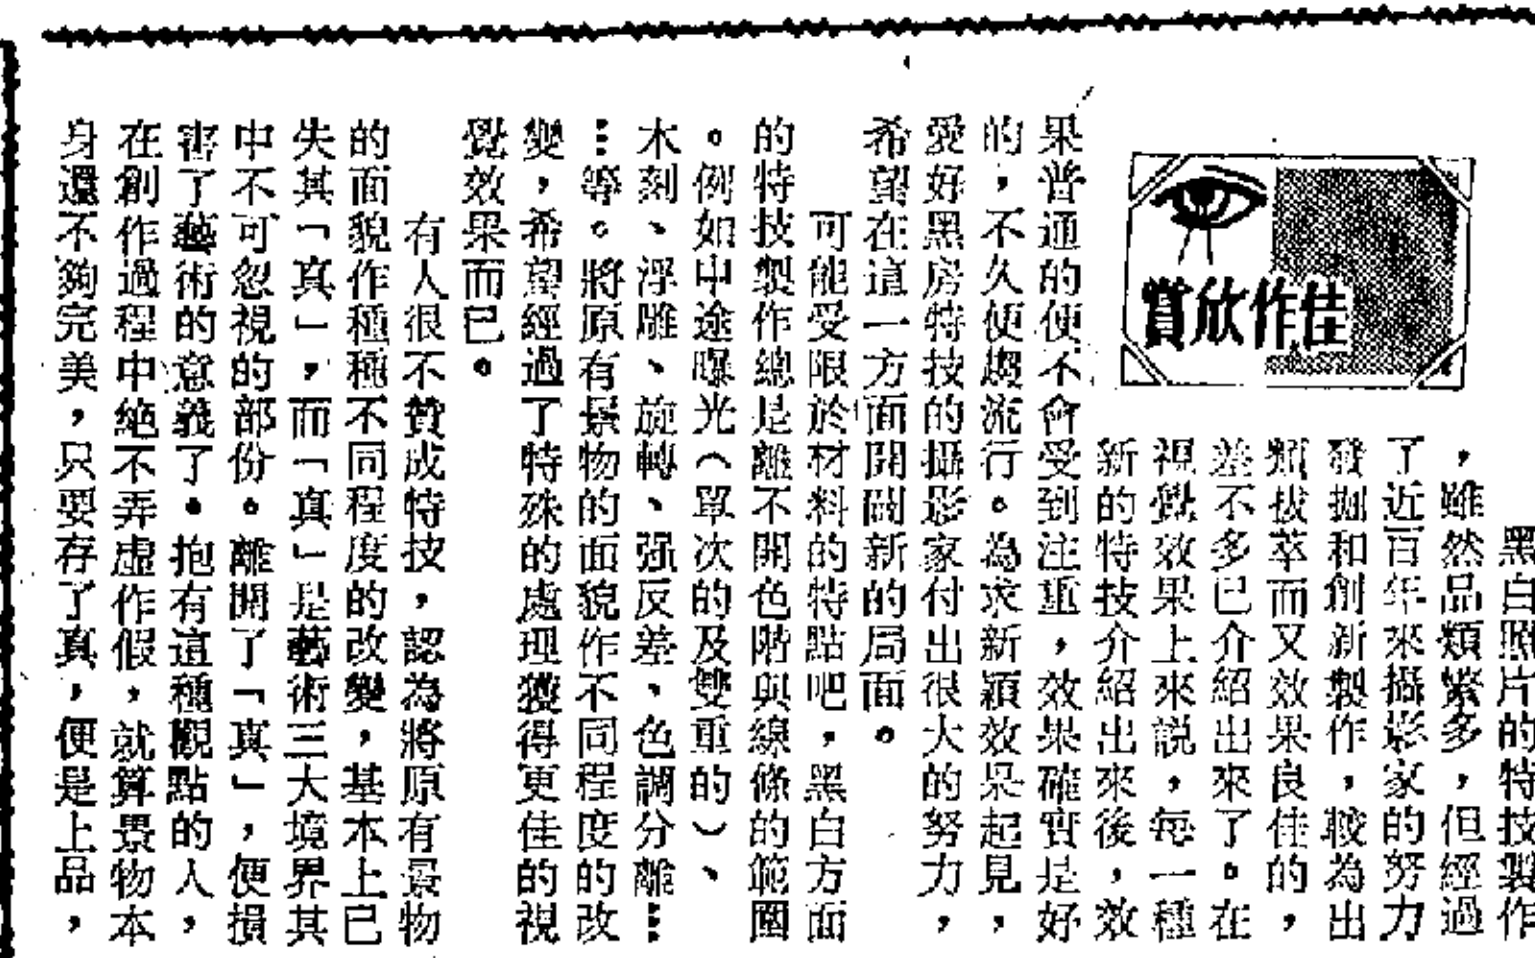 佳作欣賞
黑白照片的特技製作
，雖然品類繁多，但經過
了近百年來攝影家的努力
發掘和創新製作，較為出
類拔萃而又效果良佳的，
差不多已介紹出來了。在
視覺效果上來説，每一種
新的特技介紹出來後，效
果普通的便不會受到注重，效果確實是好
的，不久便趨流行。為求新穎效果起見，
愛好黑房特技的攝影家付出很大的努力，
希望在這一方面開闢新的局面。
可能受限於材料的特點吧，黑白方面
的特技製作總是離不開色階與線條的範圍
。例如中途曝光（單次的及雙重的）、
木刻、浮雕、旋轉、强反差、色調分離…
…等。將原有景物的面貌作不同程度的改
變，希望經過了特殊的處理獲得更佳的視
覺效果而已。
有人很不贊成特技，認為將原有景物
的面貌作種種不同程度的改變，基本上已
失其「真」，而「真」是藝術三大境界其
中不可忽視的部份。離開了「真」，便損
害了藝術的意義了。抱有這種觀點的人，
在創作過程中絶不弄虛作假，就算景物本
身還不夠完美，只要存了真，便是上品，